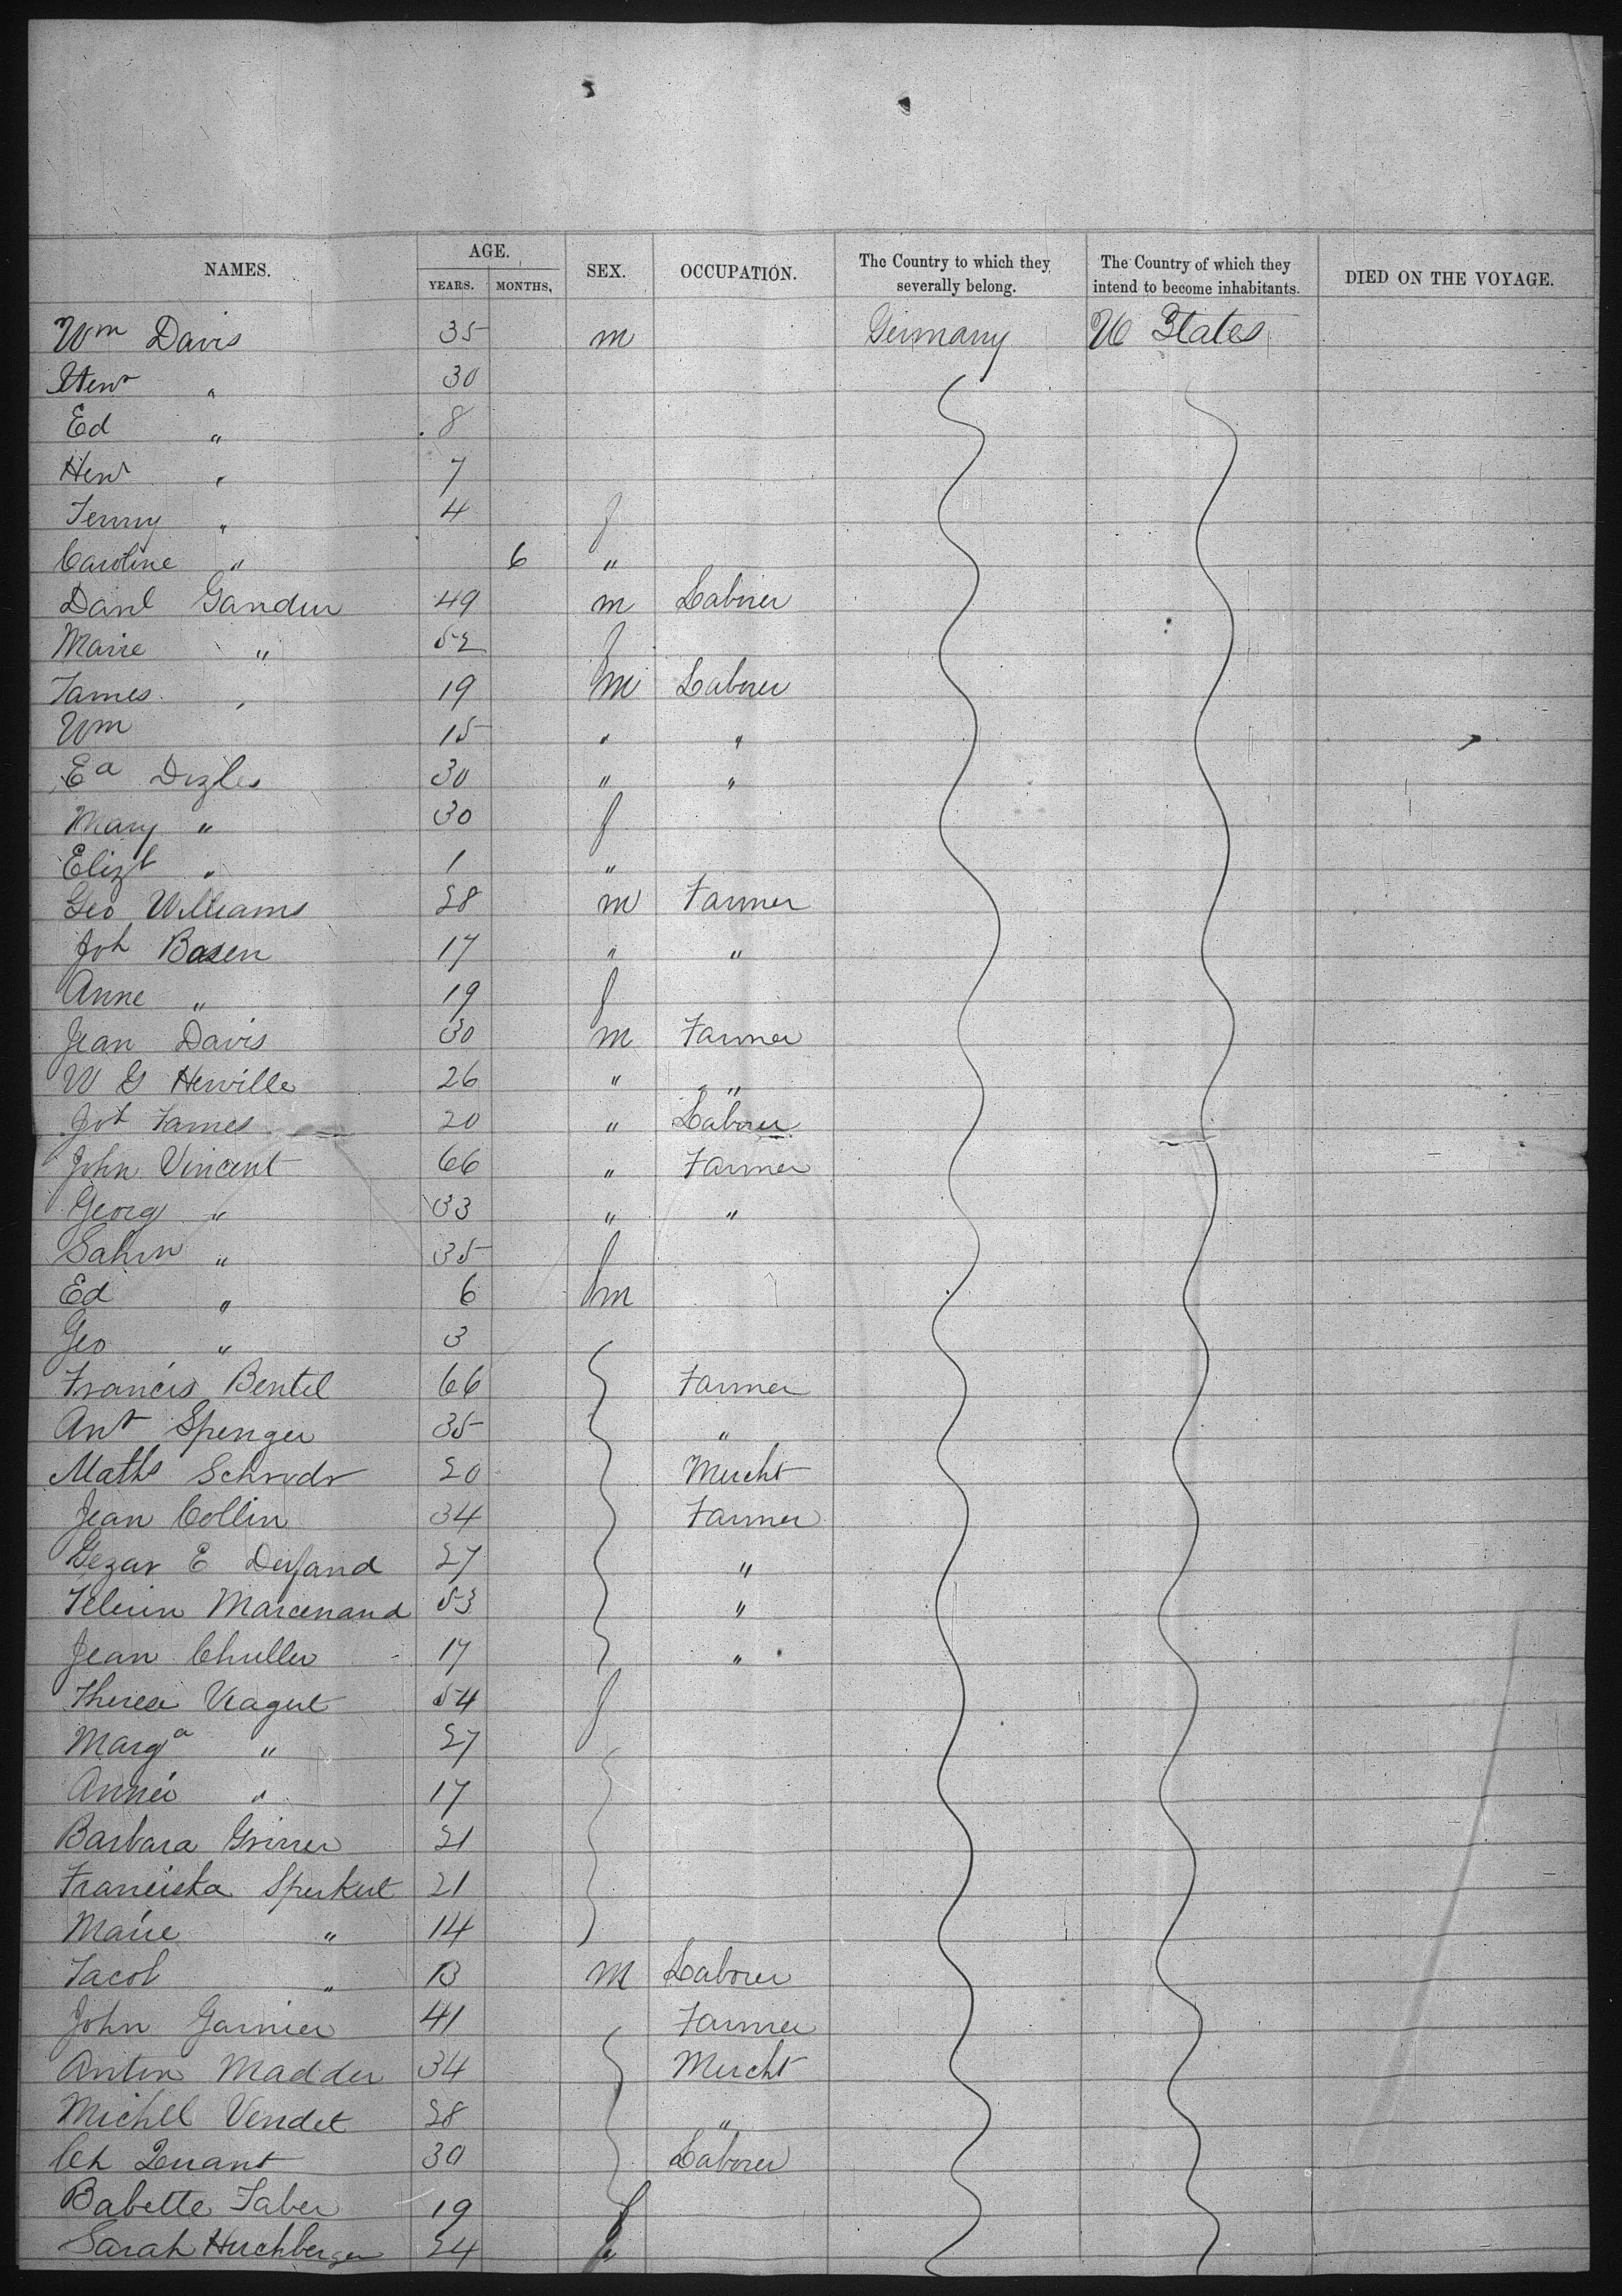 NAMES. AGE. SEX. OCCUPATION. The Country to which they severally belong. The Country of which they intend to become inhabitants. DIED ON THE VOYAGE.
YEARS. MONTHS,
Wm Davis 35 m Germany U States
Henr " 30
Ed " 8
Henr " 7
Jenny " 4 f
Caroline " 6 "
Danl Gandur 49 m Laborer
Marie " 52 f
James " 19 m Laborer
Wm 15 " "
Ea Dizles 30 " "
Mary " 30 f
Elizt " 1 "
Geo Williams 28 m Farmer
Joh Basen 17 " "
Anne " 19 f
Jean Davis 30 m Farmer
W G Herville 26 " "
Joh James 20 " Laborer
John Vincent 66 " Farmer
Georg " 33 " "
" 35 f
Ed " 6 m
Geo " 3
Francis Bentel 66 Farmer
Ant Spenger 35 "
Maths Schrodr 20 Mercht
Jean Collin 34 Farmer
E 27 "
Marcenand 53 "
Jean Chuller 17 "
Theresa 54 f
Marga " 27
Annie " 17
Barbara 21
Franciska Sperkert 21
Marie " 14
Jacob " 13 m Laborer
John Garnier 41 Farmer
Anton Madder 34 Mercht
Michel Vendet 28 "
Ch 30 Laborer
Babette Faber 19 f
Sarah Hirchberger 24 "